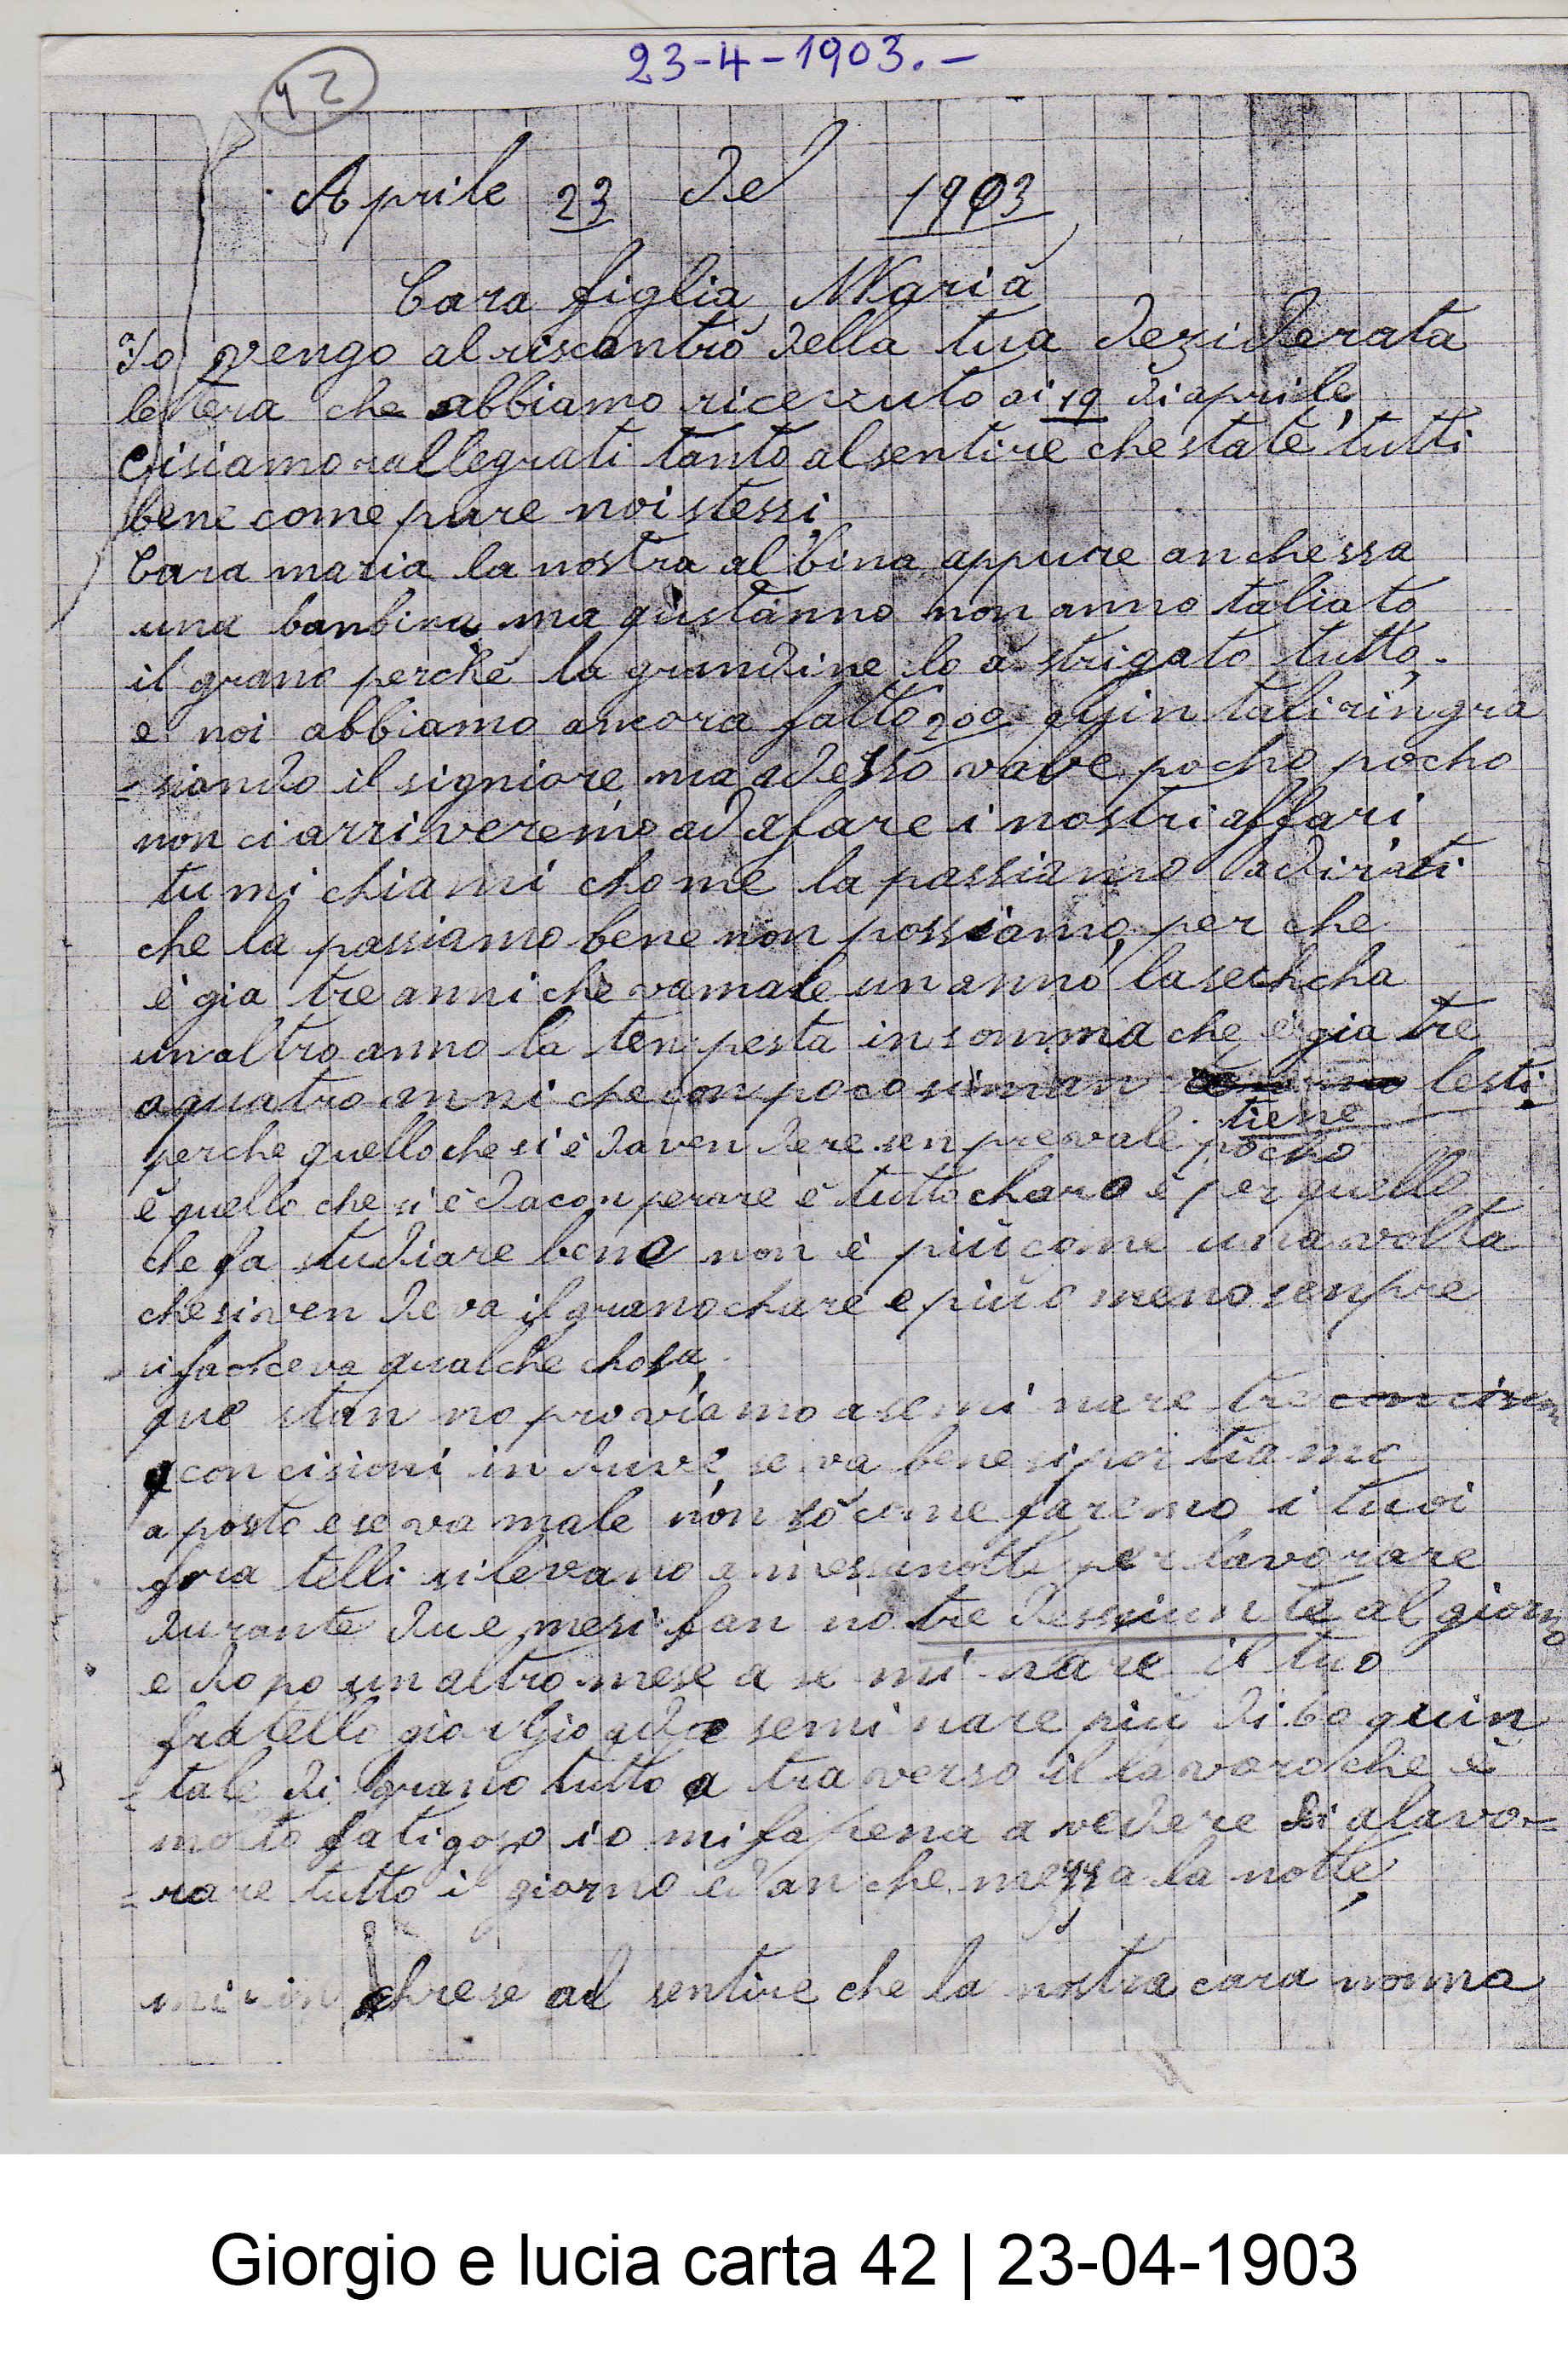 23-4-1903.-
42
Aprile 23 del 1903
Cara figlia Maria
Io vengo al riscontro della tua deziderata
lettera che abbiamo ricevuto ai 19 di aprile
Cisiamo rallegrati tanto al sentire che state tutti
bene come pure noi stessi
Cara maria la nostra albina appure anchessa
una banbina ma qustanno non anno taliato
il grano perche la grandine lo a strigato tutto.
e noi abbiamo ancora fatto 200 quintali ringra
=siando il signiore ma adesso vale pocho pocho
non ci arriveremo ad afare i nostri affari
tu mi chiami chome la passiamo a dirti
che la passiamo bene non possiamo per che
è gia tre anni che va male un anno la sechcha
un altro anno la tenpesta in somma che è gia tre
a quatro anni che con poco si man tiene lesti
perche quello che si è da ven dere senpre vale pocho
è quello che si è da conperare è tutto charo è per quello
che fa studiare bene non è più come una volta
che si ven deva il grano chare e più o meno senpre
si facceva qualche chosa
que stan no proviamo a semi nare tre concision
concisioni in due se va bene si portiamo
a posto e se va male non so come faremo i tuoi
fra telli si levano a messanotte per lavorare
durante due mesi fan no tre dessiunte al giorno
e dopo un altro mese a se mi nare il tuo
fratello giorgio a da seminare più di 60 quin
=tale di grano tutto a traverso il lavoro che è
molto fatigoso io mi fa pena a vedere di alavo=
=rare tutto il giorno ed anche mezza la notte
chrese al sentire che la nostra cara nonna
Giorgio e lucia carta 42 | 23-04-1903